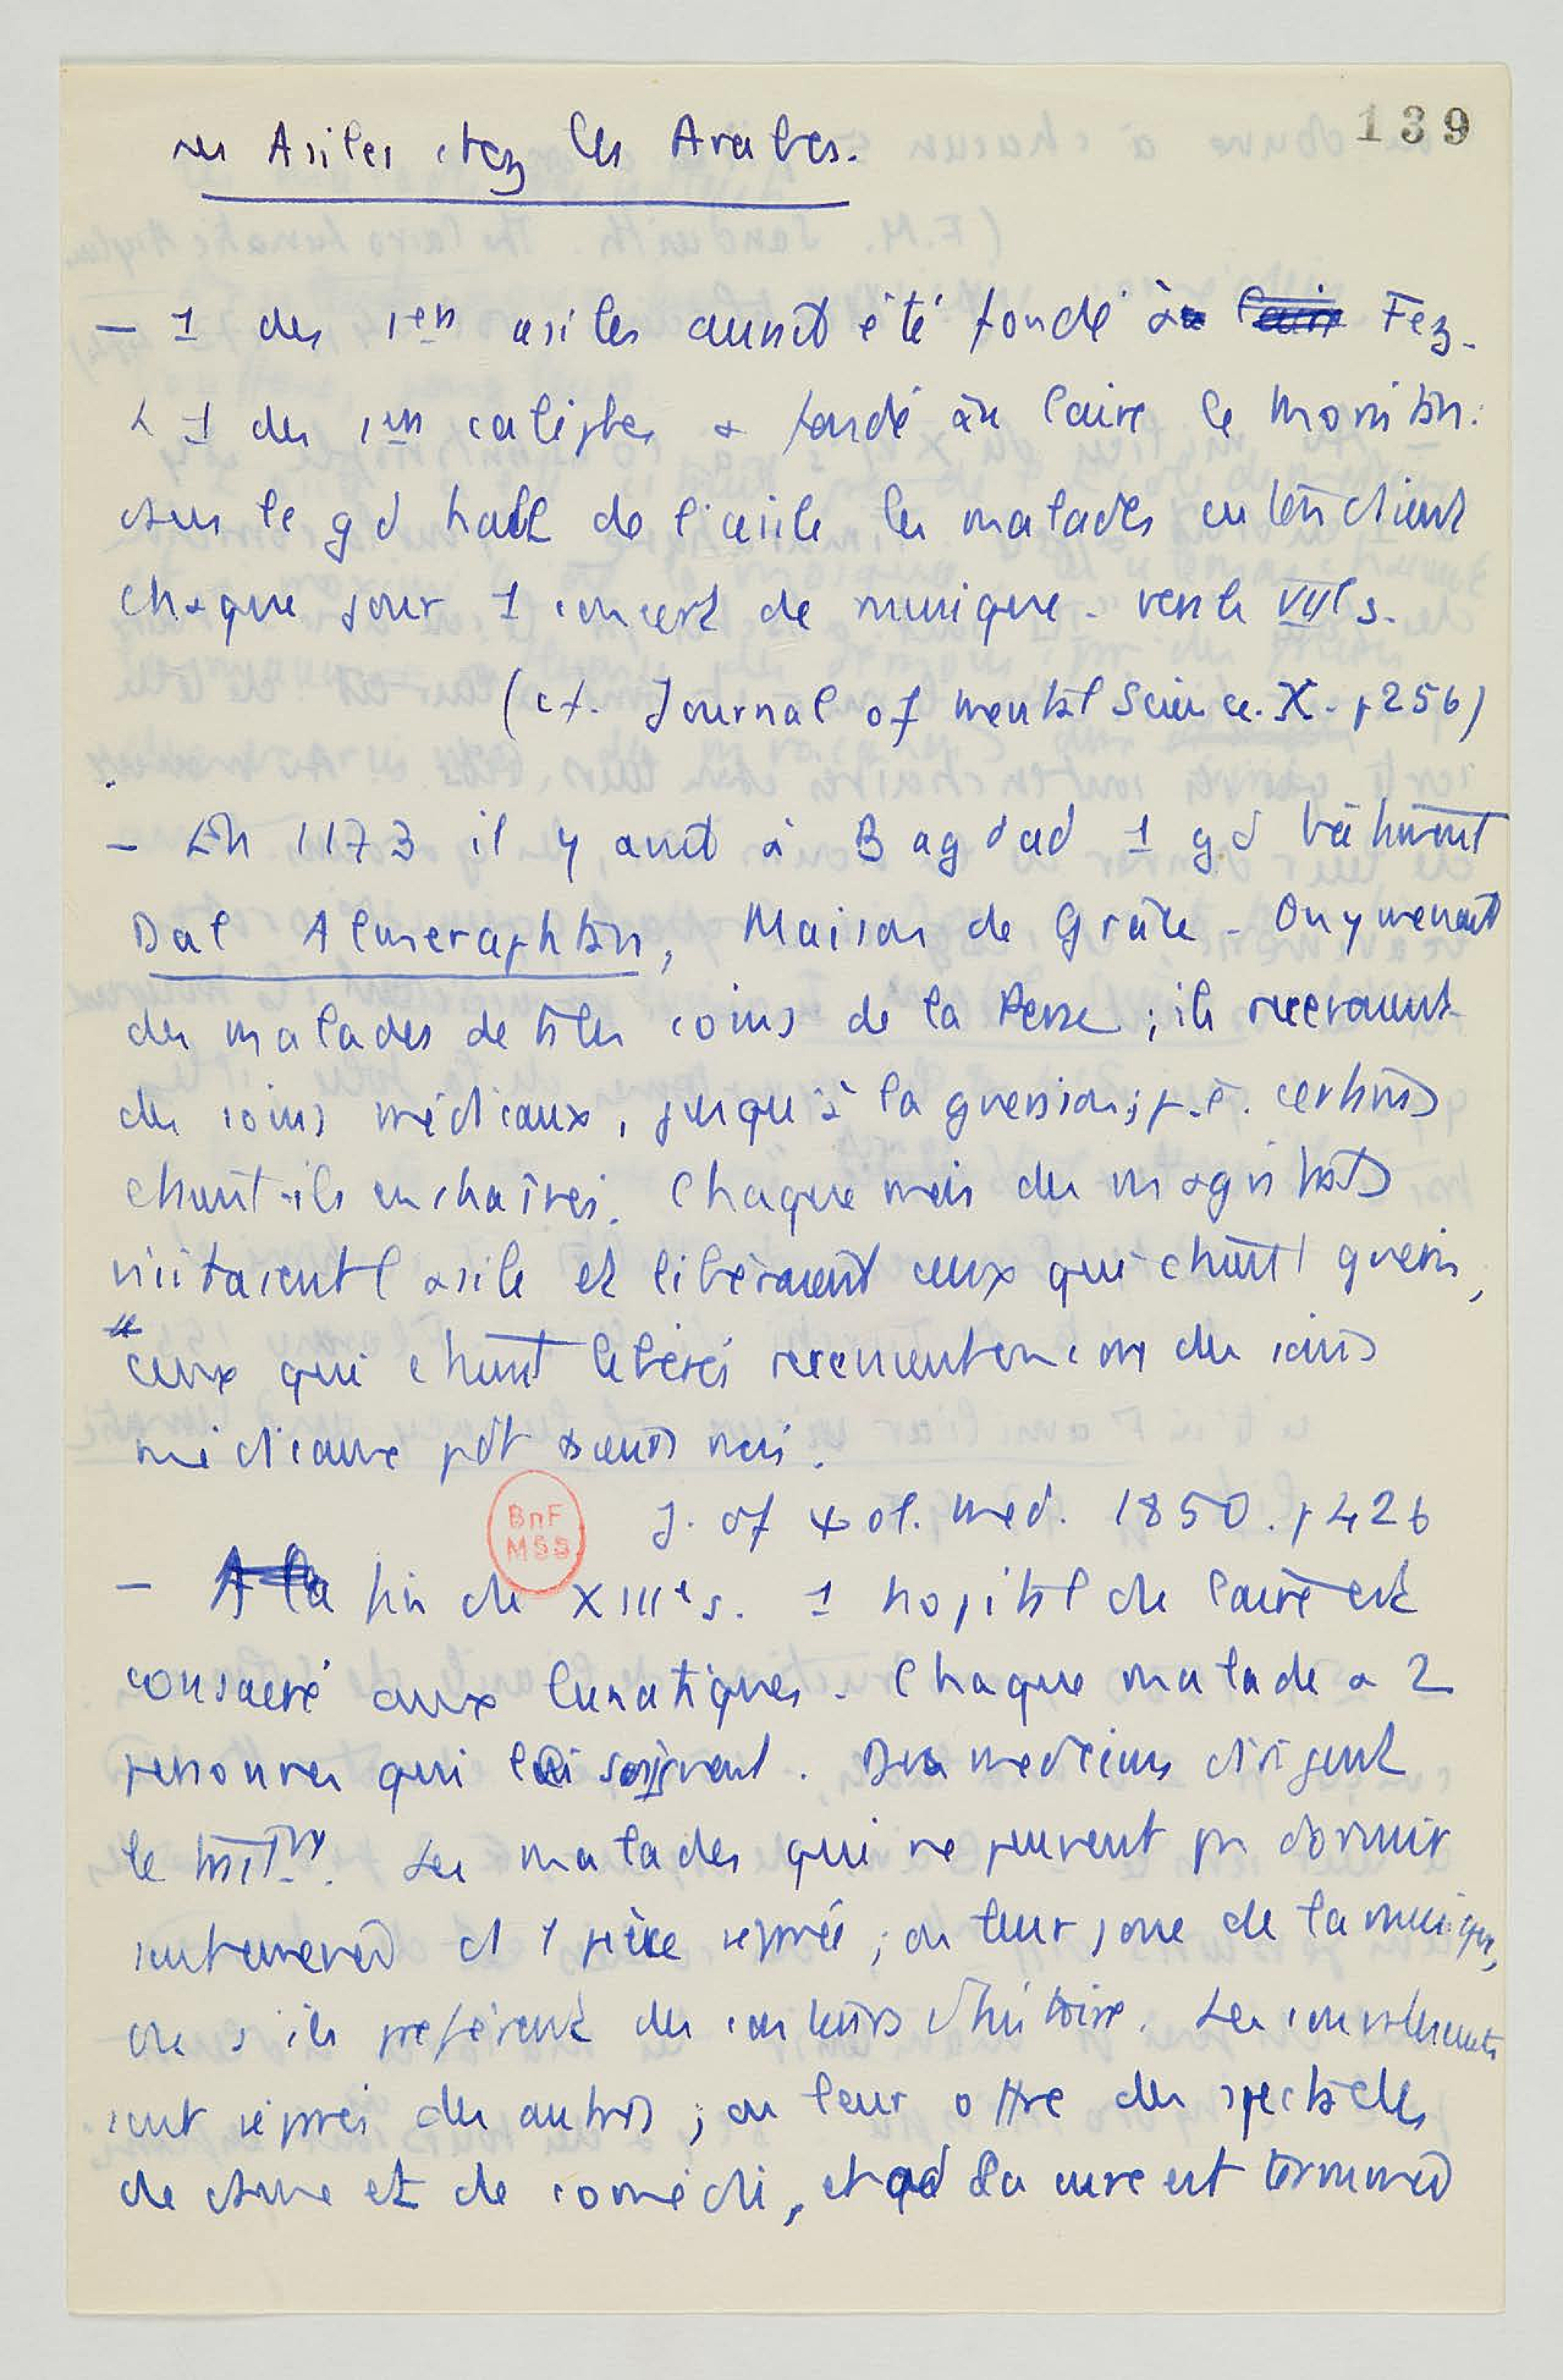 139
Les Asiles chez les Arabes.
– 1 des 1ers asiles aurait été fondé à Fez.
& 1 des 1ers califes a fondé au Caire le Moristan.
dans le gd hall de l'asile les malades entendaient
chaque jour 1 concert de musique. vers le VIIe s.
(cf. Journal of mental Science. X. p 256)
– En 1173 il y avait à Bagdad 1 gd bâtiment
Dal Almeraphtan, Maison de Grâce. On y menait
des malades de ts les coins de la Perse ; ils recevaient
des soins médicaux, jusqu'à la guérison ; certains
étaient-ils enchaînés. Chaque mois des magistrats
visitaient l'asile et libéraient ceux qui étaient guéris,
ceux qui étaient libérés recevaient encore des soins
médicaux pdt mois.
J. of Psol. med. 1850. p 426
– A la fin du XIIIe s. 1 hopital du Caire est
consacré aux lunatiques. Chaque malade a 2
personnes qui le soignent. Des médecins dirigent
le traitmt. Les malades qui ne peuvent pas dormir
sont amenés ds 1 pièce séparée ; on leur joue de la musique,
ou s'ils préfèrent des conteurs d'histoire. Les convalescents
sont séparés des autres ; on leur offre des spectacles
de danse et de comédie, et qd la cure est terminée
BnF
MSS